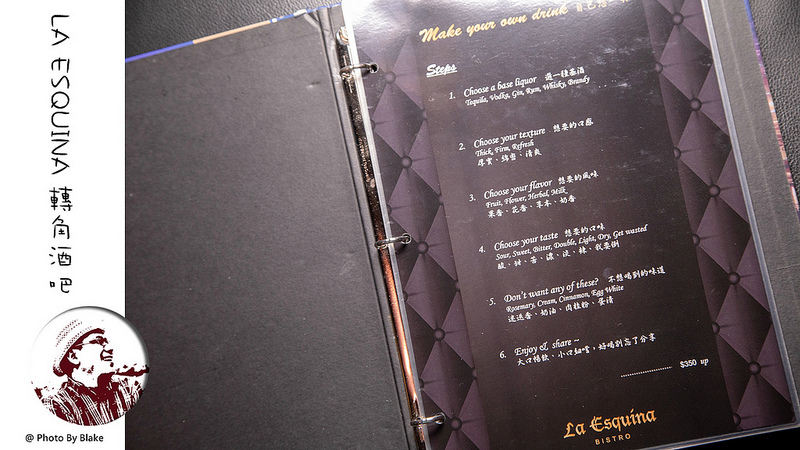 LA ESQUINA 轉角酒吧
@ Photo By Blake
Make your own drink 自己
Steps
1. Choose a base liquor 選一種基酒
Tequila, Vodka, Gin, Rum, Whisky, Brandy
2. Choose your texture 想要的口感
Thick, Firm, Refresh
厚實、綿密、清爽
3. Choose your flavor 想要的風味
Fruit, Flower, Herbal, Milk
果香、花香、草本、奶香
4. Choose your taste 想要的口味
Sour, Sweet, Bitter, Double, Light, Dry, Get wasted
酸、甜、苦、濃、淡、辣、我要倒
5. Don't want any of these? 不想喝到的味道
Rosemary, Cream, Cinnamon, Egg White
迷迭香、奶油、肉桂粉、蛋清
6. Enjoy & share ~
大口暢飲、小口細嚐，好喝別忘了分享
$350 up
La Esquina
BISTRO